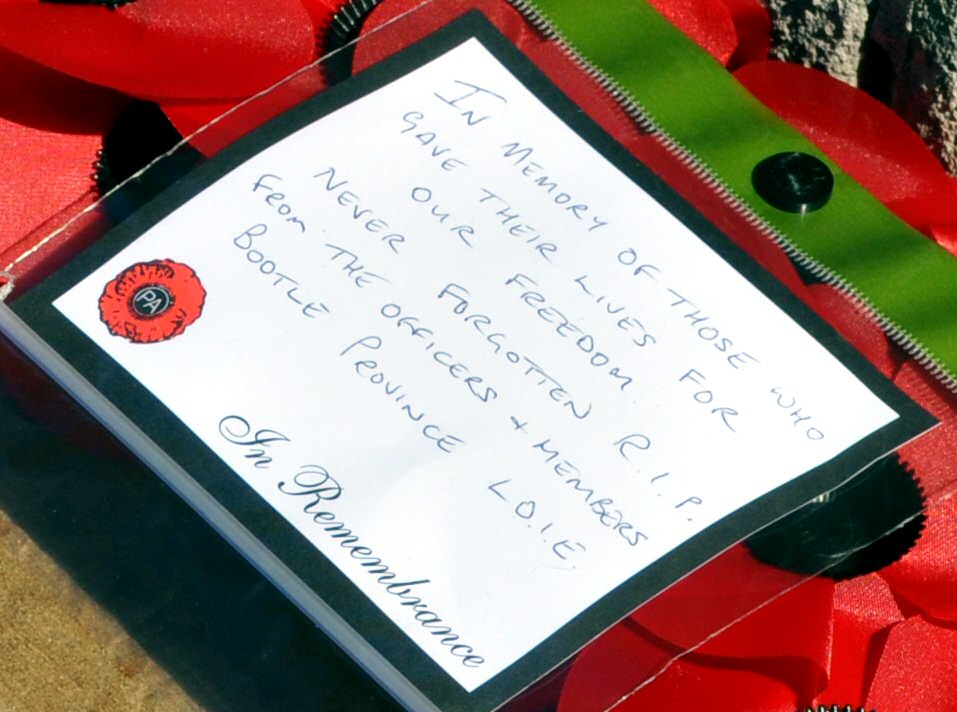 IN MEMORY OF THOSE WHO
GAVE THEIR LIVES FOR
OUR FREEDOM.
NEVER FORGOTTEN R.I.P.
FROM THE OFFICERS + MEMBERS
BOOTLE PROVINCE L.O.I.E.
PA
In Remembrance